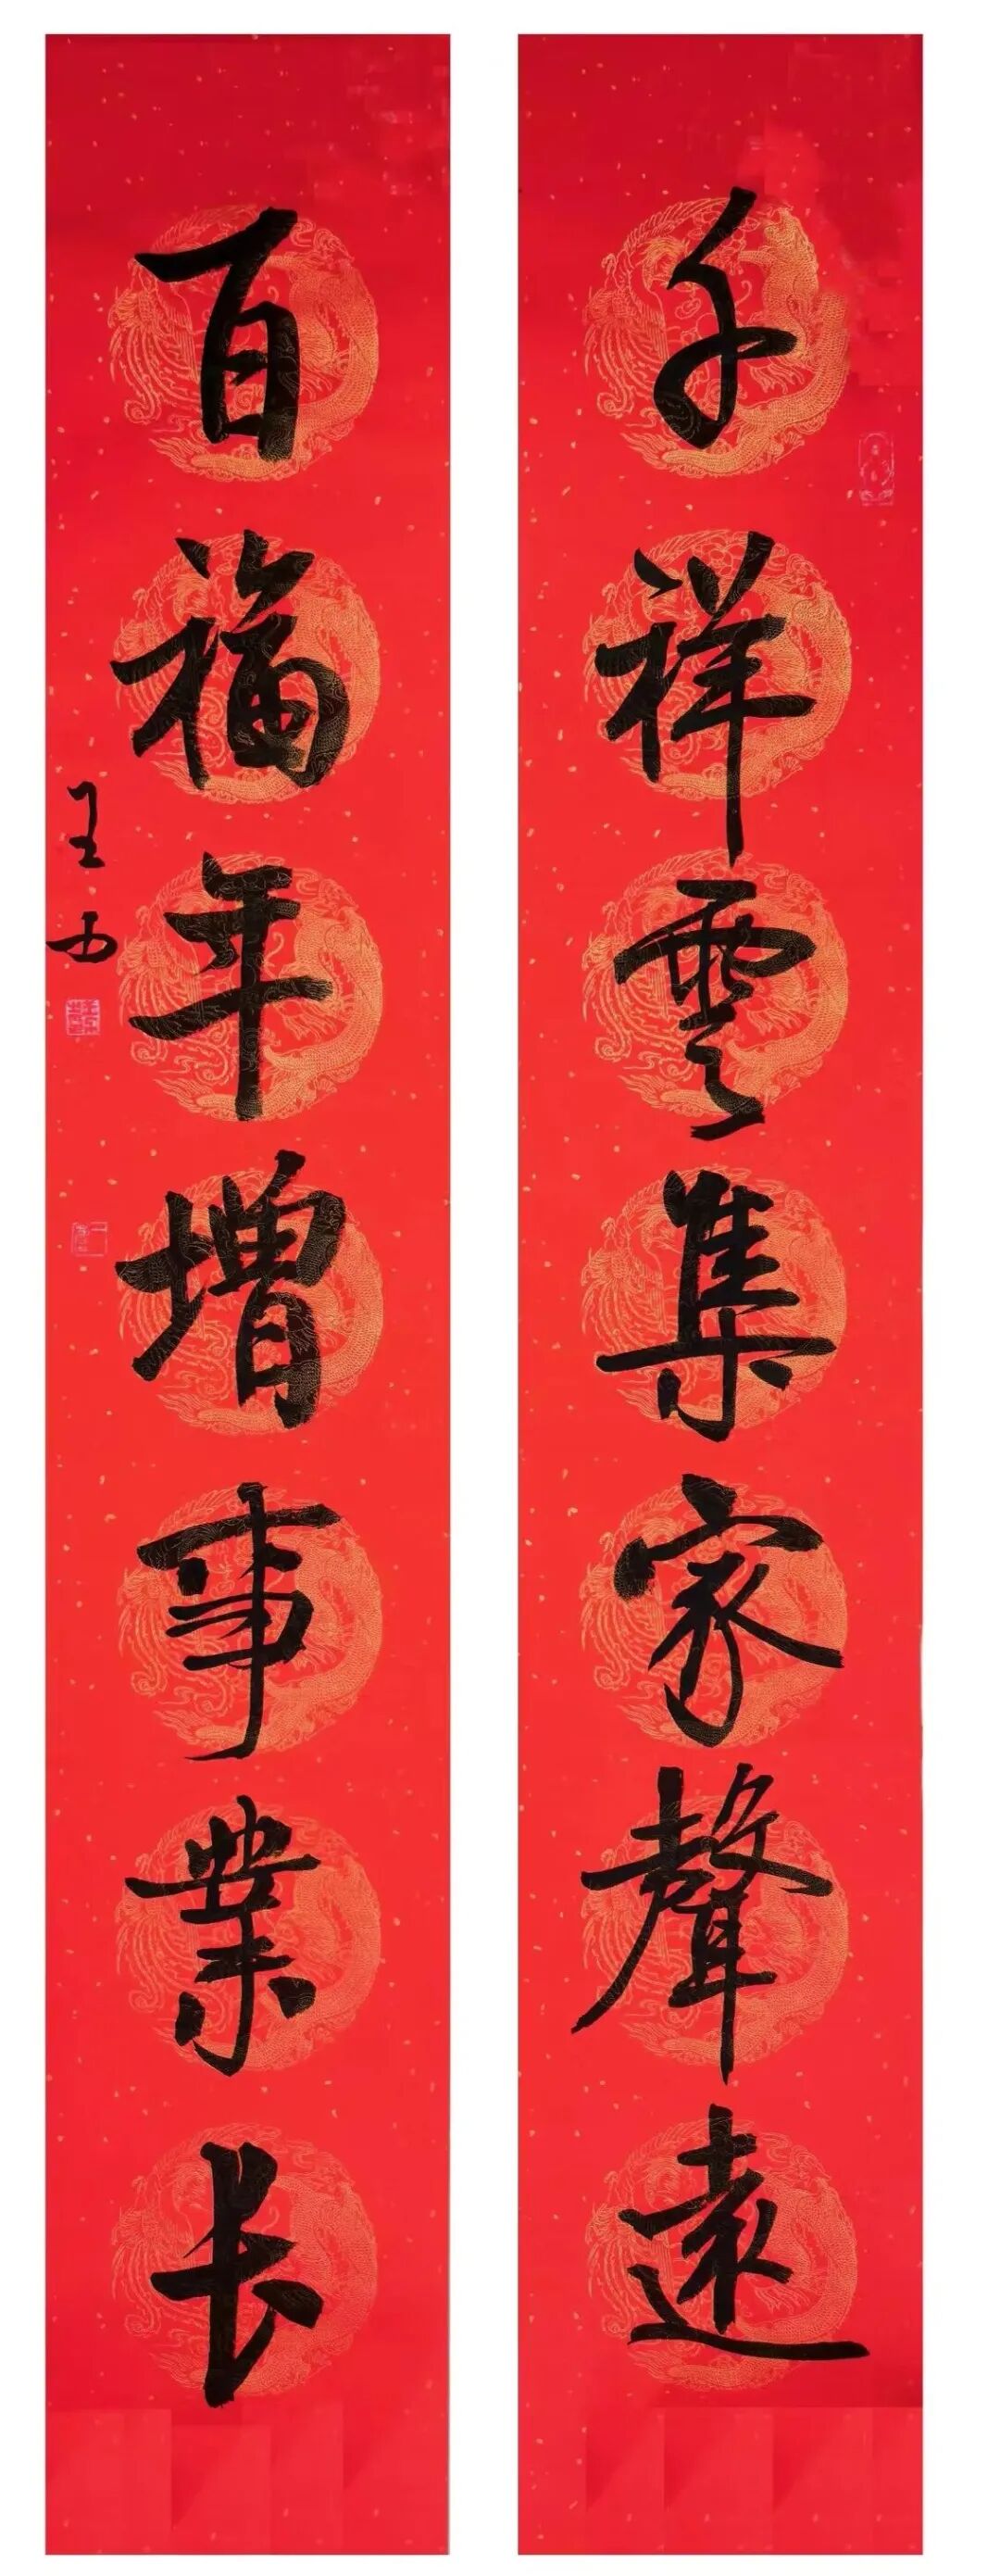 千祥雲集家聲遠
百福年增事業長